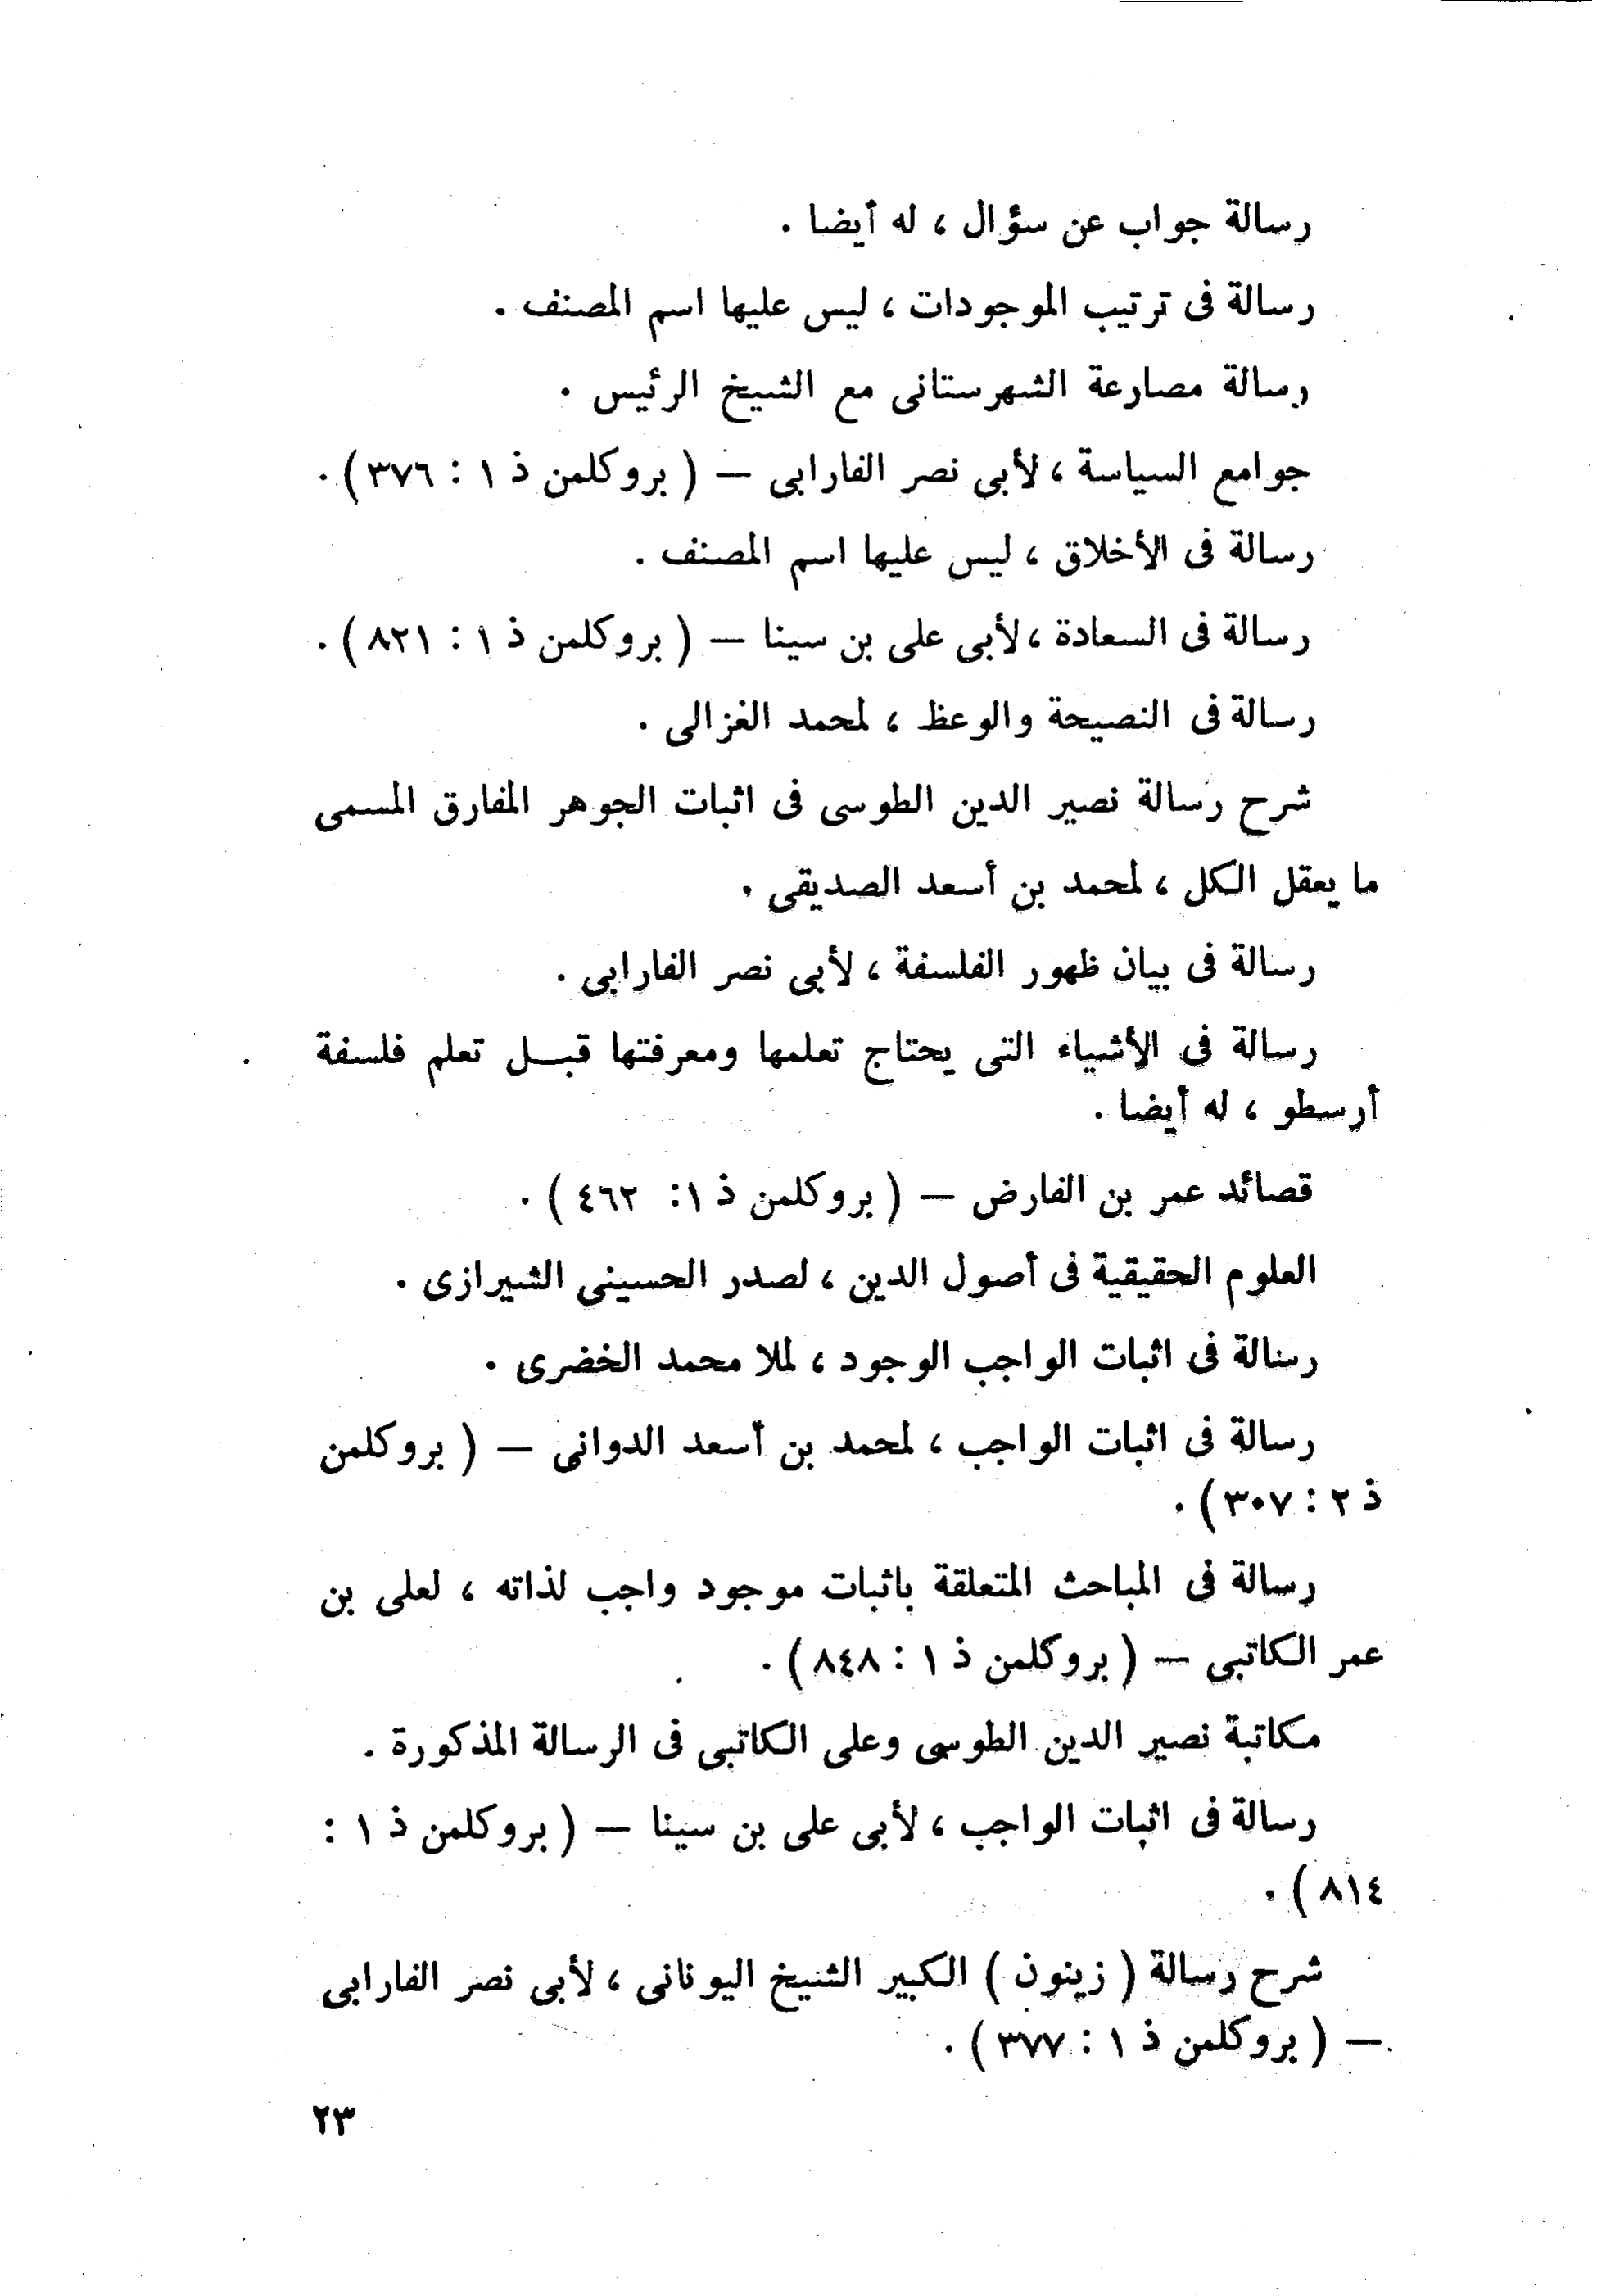 رسالة جواب عن سؤال ، له أيضا .
رسالة فى ترتيب الموجودات ، ليس عليها اسم المصنف .
رسالة مصارعة الشهرستانى مع الشيخ الرئيس .
جوامع السياسة ، لأبى نصر الفارابى — ( بروكلمن ذ ١ : ٣٧٦ ) .
رسالة فى الأخلاق ، ليس عليها اسم المصنف .
رسالة فى السعادة ، لأبى على بن سينا — ( بروكلمن ذ ١ : ٨٢١ ) .
رسالة فى النصيحة والوعظ ، لمحمد الغزالى .
شرح رسالة نصير الدين الطوسى فى اثبات الجوهر المفارق المسمى
ما يعقل الكل ، لمحمد بن أسعد الصديقى .
رسالة فى بيان ظهور الفلسفة ، لأبى نصر الفارابى .
رسالة فى الأشياء التى يحتاج تعلمها ومعرفتها قبـل تعلم فلسفة
أرسطو ، له أيضا .
قصائد عمر بن الفارض — ( بروكلمن ذ ١ : ٤٦٢ ) .
العلوم الحقيقية فى أصول الدين ، لصدر الحسينى الشيرازى .
رسالة فى اثبات الواجب الوجود ، لملا محمد الخضرى .
رسالة فى اثبات الواجب ، لمحمد بن أسعد الدوانى — ( بروكلمن
ذ ٢ : ٣٠٧ ) .
رسالة فى المباحث المتعلقة باثبات موجود واجب لذاته ، لعلى بن
عمر الكاتبى — ( بروكلمن ذ ١ : ٨٤٨ ) .
مكاتبة نصير الدين الطوسى وعلى الكاتبى فى الرسالة المذكورة .
رسالة فى اثبات الواجب ، لأبى على بن سينا — ( بروكلمن ذ ١ :
٨١٤ ) .
شرح رسالة ( زينون ) الكبير الشيخ اليونانى ، لأبى نصر الفارابى
— ( بروكلمن ذ ١ : ٣٧٧ ) .
٢٣